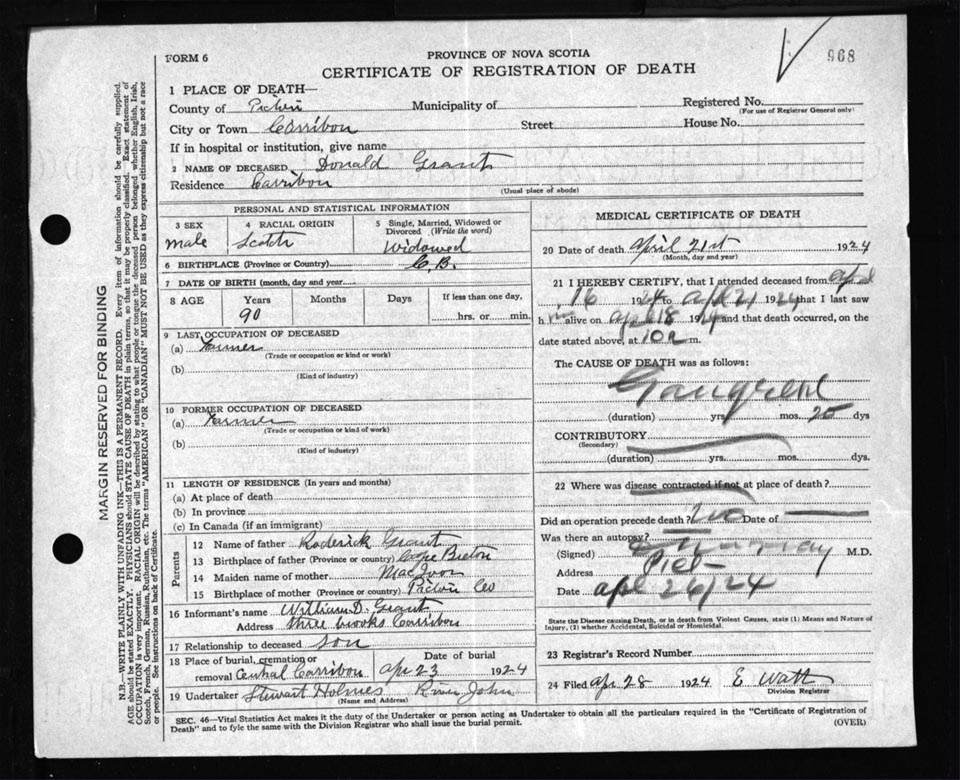 968
FORM 6
PROVINCE OF NOVA SCOTIA
CERTIFICATE OF REGISTRATION OF DEATH
1 PLACE OF DEATH—
County of Pictou Municipality of Registered No.
(For use of Registrar General only)
City or Town Carribou Street House No.
If in hospital or institution, give name
2 NAME OF DECEASED Donald Grant
Residence Carribou
(Usual place of abode)
PERSONAL AND STATISTICAL INFORMATION
3 SEX 4 RACIAL ORIGIN 5 Single, Married, Widowed or Divorced (Write the word)
Male Scotch Widowed
6 BIRTHPLACE (Province or Country) C.B.
7 DATE OF BIRTH (month, day and year)
8 AGE Years Months Days If less than one day,
90 hrs. or min.
9 LAST OCCUPATION OF DECEASED
(a) Farmer
(Trade or occupation or kind of work)
(b)
(Kind of industry)
10 FORMER OCCUPATION OF DECEASED
(a) Farmer
(Trade or occupation or kind of work)
(b)
(Kind of industry)
11 LENGTH OF RESIDENCE (In years and months)
(a) At place of death
(b) In province
(c) In Canada (if an immigrant)
Parents
12 Name of father Roderick Grant
13 Birthplace of father (Province or country) Cape Breton
14 Maiden name of mother
15 Birthplace of mother (Province or country) Pictou Co
16 Informant's name William D. Grant
Address Three brooks Carribou
17 Relationship to deceased son
18 Place of burial, cremation or removal Central Carribou Date of burial Apr 23 1924
19 Undertaker Stewart Holmes River John
(Name and Address)
MEDICAL CERTIFICATE OF DEATH
20 Date of death April 21st 1924
(Month, day and year)
21 I HEREBY CERTIFY, that I attended deceased from April
16 1924 to apl 21 1924 that I last saw
h im alive on apl 18 1924 and that death occurred, on the
date stated above, at 10 a m.
The CAUSE OF DEATH was as follows:
Gangrene
(duration) yrs. mos. 20 dys
CONTRIBUTORY
(Secondary)
(duration) yrs. mos. dys.
22 Where was disease contracted if not at place of death?
Did an operation precede death? No Date of
Was there an autopsy?
(Signed) Murray M.D.
Address Pict
Date apl 26/24
State the Disease causing Death, or in death from Violent Causes, state (1) Means and Nature of
Injury, (2) whether Accidental, Suicidal or Homicidal.
23 Registrar's Record Number
24 Filed apr 28 1924 E Watt
Division Registrar
SEC. 46—Vital Statistics Act makes it the duty of the Undertaker or person acting as Undertaker to obtain all the particulars required in the "Certificate of Registration of
Death" and to fyle the same with the Division Registrar who shall issue the burial permit.
(OVER)
MARGIN RESERVED FOR BINDING
N.B.—WRITE PLAINLY WITH UNFADING INK—THIS IS A PERMANENT RECORD. Every item of information should be carefully supplied.
AGE should be stated EXACTLY. PHYSICIANS should STATE CAUSE OF DEATH in plain terms, so that it may be properly classified. Exact statement of
OCCUPATION is very important. RACIAL ORIGIN will be described by stating to what people or tongue the deceased person belonged whether English, Irish,
Scotch, French, German, Russian, Ruthenian, etc. The terms "AMERICAN" OR "CANADIAN" MUST NOT BE USED as they express citizenship but not a race
or people. See instructions on back of Certificate.